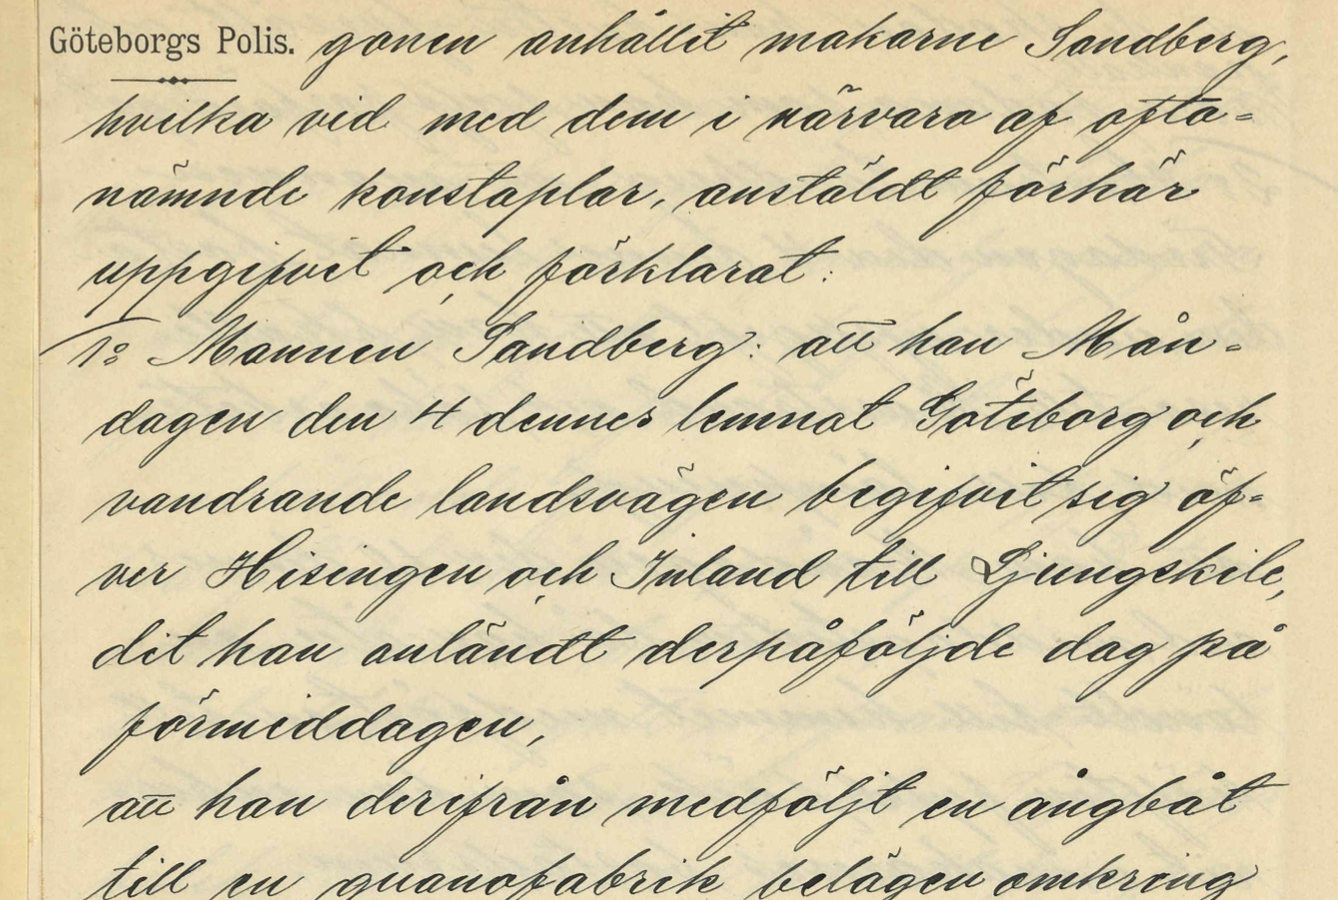 Göteborgs Polis. gonen anhållit makarne Sandberg,
hvilka vid med dem i närvara af ofta=
nämnde konstaplar, anstäldt förhör
uppgifvit och förklarat:
1º Mannen Sandberg: att han Mån=
dagen den 4 dennes lemnat Göteborg och
vandrande landsvägen begifvit sig öf=
ver Hisingen och Inland till Ljungskile,
dit han anländt derpåföljde dag på
förmiddagen,
att han derifrån medföljt en ångbåt
till en guanofabrik belägen omkring